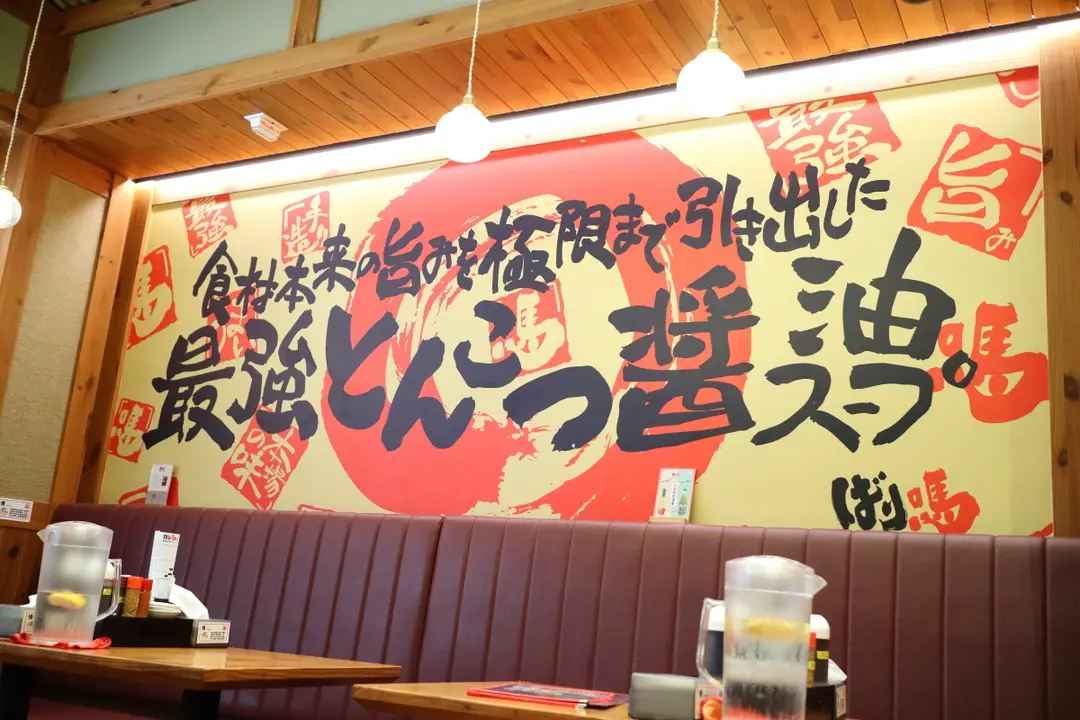 食材本来の旨みを極限まで引き出した
最強とんこつ醤油スープ。
ばり嗎
最強
手造り
最強
旨み
嗎
嗎
嗎
嗎
本場の味